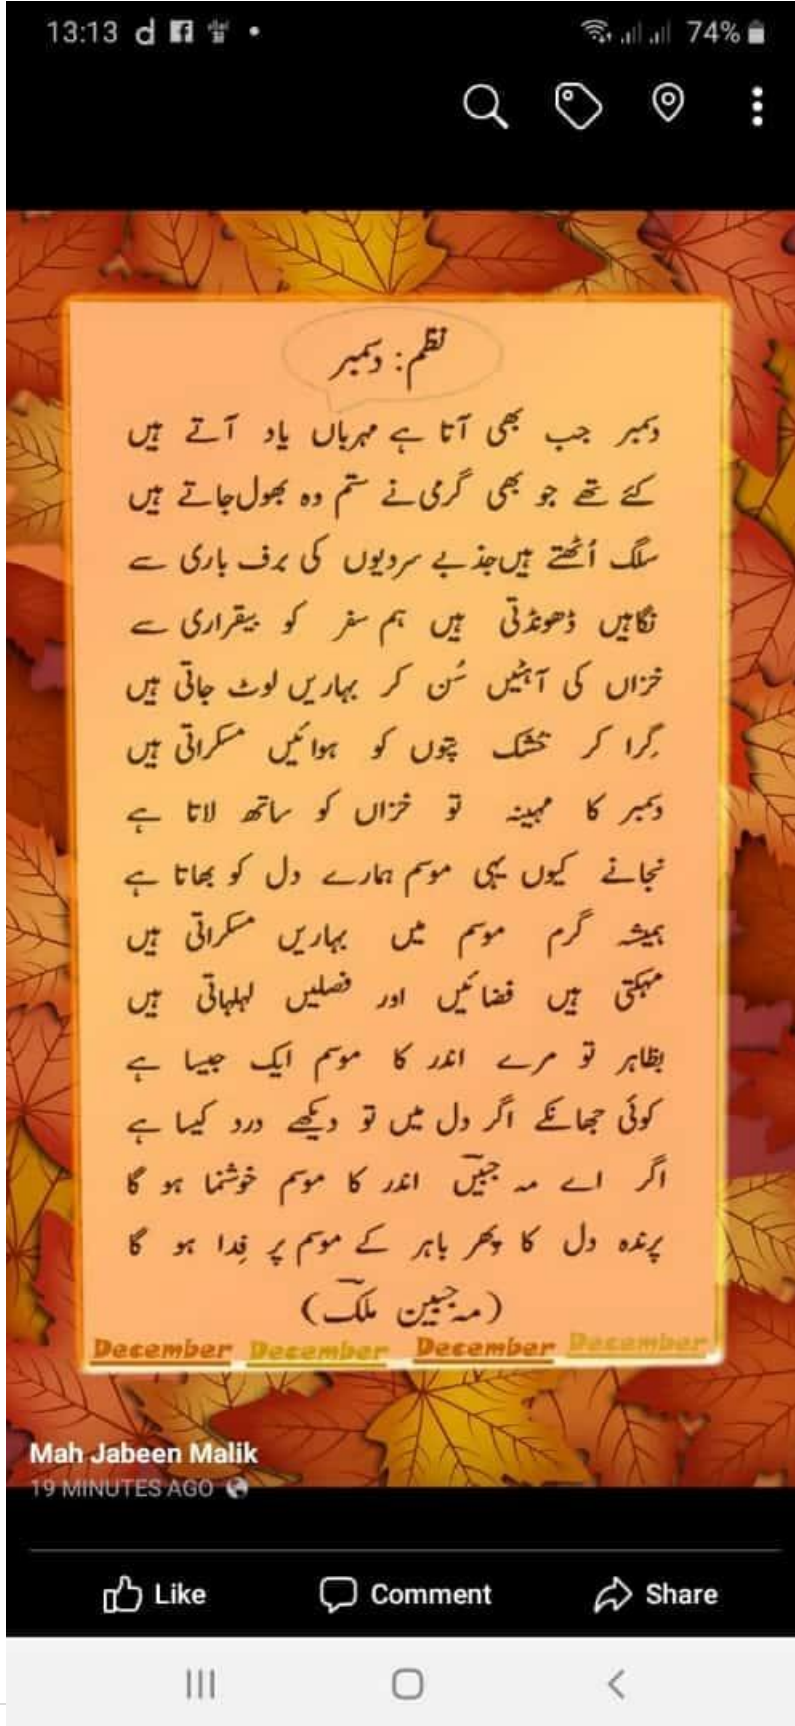 13:13
74%
نظم: دسمبر
دسمبر جب بھی آتا ہے مہرباں یاد آتے ہیں
کئے تھے جو بھی گرمی نے ستم وہ بھول جاتے ہیں
سلگ اُٹھتے ہیں جذبے سردیوں کی برف باری سے
نگاہیں ڈھونڈتی ہیں ہم سفر کو بیقراری سے
خزاں کی آہٹیں سُن کر بہاریں لوٹ جاتی ہیں
گِرا کر خشک پتوں کو ہوائیں مسکراتی ہیں
دسمبر کا مہینہ تو خزاں کو ساتھ لاتا ہے
نجانے کیوں یہی موسم ہمارے دل کو بھاتا ہے
ہمیشہ گرم موسم میں بہاریں مسکراتی ہیں
مہکتی ہیں فضائیں اور فصلیں لہلہاتی ہیں
بظاہر تو مرے اندر کا موسم ایک جیسا ہے
کوئی جھانکے اگر دل میں تو دیکھے درد کیسا ہے
اگر اے مہ جبیںؔ اندر کا موسم خوشنما ہو گا
پرندہ دل کا پھر باہر کے موسم پر فِدا ہو گا
(مہ جبین ملکؔ)
December December December December
Mah Jabeen Malik
19 MINUTES AGO
Like Comment Share